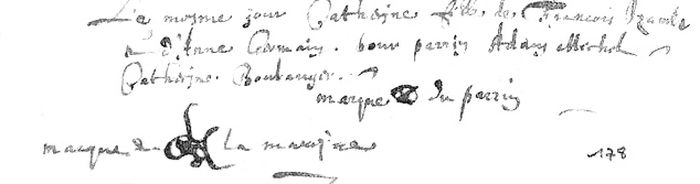 Le mesme jour Catherine fille de Francois
& d'Anne Germain. pour parrin Adam Michel
Catherine Boulanger.
marque du parrin
marque de la maraine
178